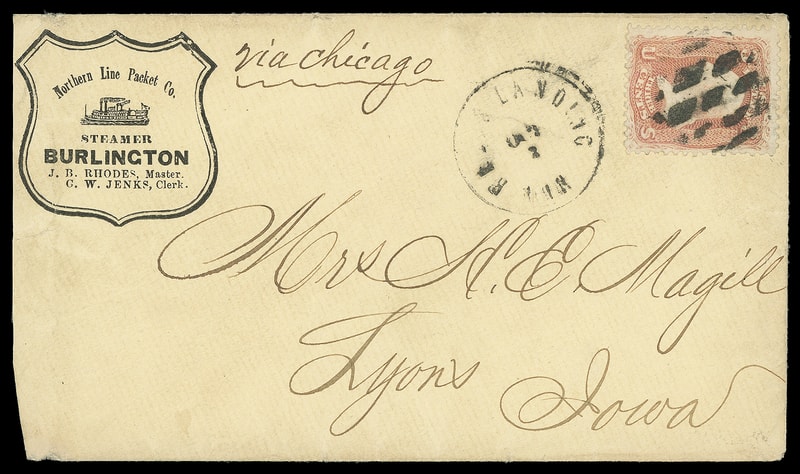 Northern Line Packet Co.
STEAMER
BURLINGTON
J. B. RHODES, Master.
C. W. JENKS, Clerk.
via chicago
LANDING
Mrs A. E. Magill
Lyons
Iowa